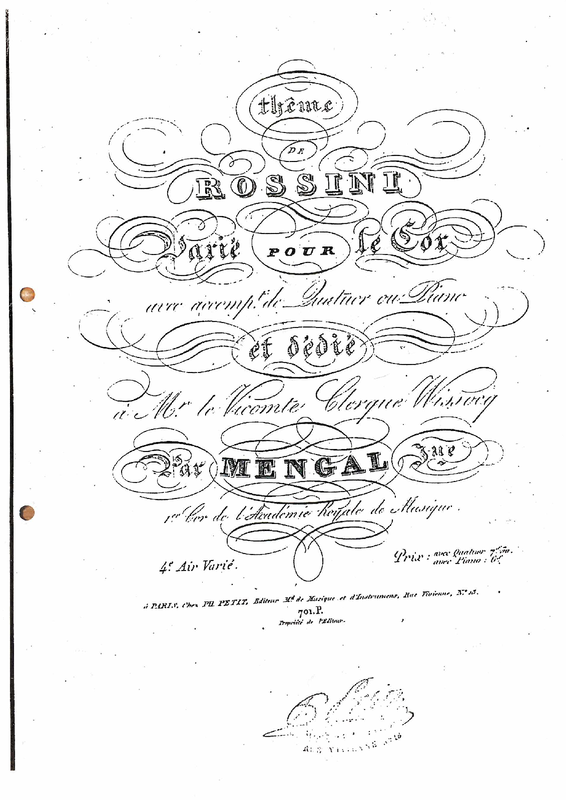 thême
DE
ROSSINI
Varié POUR le Cor
avec accompt. de Quatuor ou Piano
et dédié
à Mr. le Vicomte Clerque Wissocq
Par MENGAL Jne
1er Cor de l'Académie Royale de Musique.
4e. Air Varié.
Prix : avec Quatuor 7f 50.
avec Piano : 6f.
à PARIS, Chez PH. PETIT, Editeur Md. de Musique et d'Instrumens, Rue Vivienne, No.
701.P.
Propriété de l'Editeur.
RUE VIVIENNE